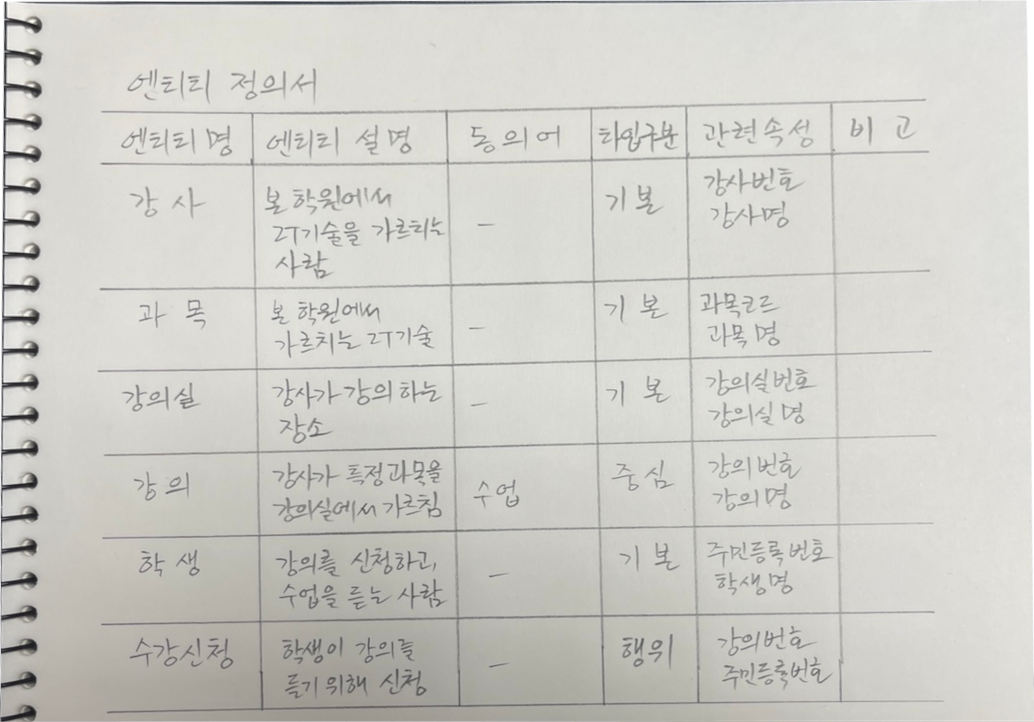 엔티티 정의서
엔티티명 엔티티 설명 동의어 타입구분 관련속성 비고
강사 본 학원에서 - 기본 강사번호
IT기술을 가르치는 강사명
사람
과목 본 학원에서 - 기본 과목코드
가르치는 IT기술 과목명
강의실 강사가 강의하는 - 기본 강의실번호
장소 강의실명
강의 강사가 특정과목을 수업 중심 강의번호
강의실에서 가르침 강의명
학생 강의를 신청하고, - 기본 주민등록번호
수업을 듣는 사람 학생명
수강신청 학생이 강의를 - 행위 강의번호
듣기 위해 신청 주민등록번호